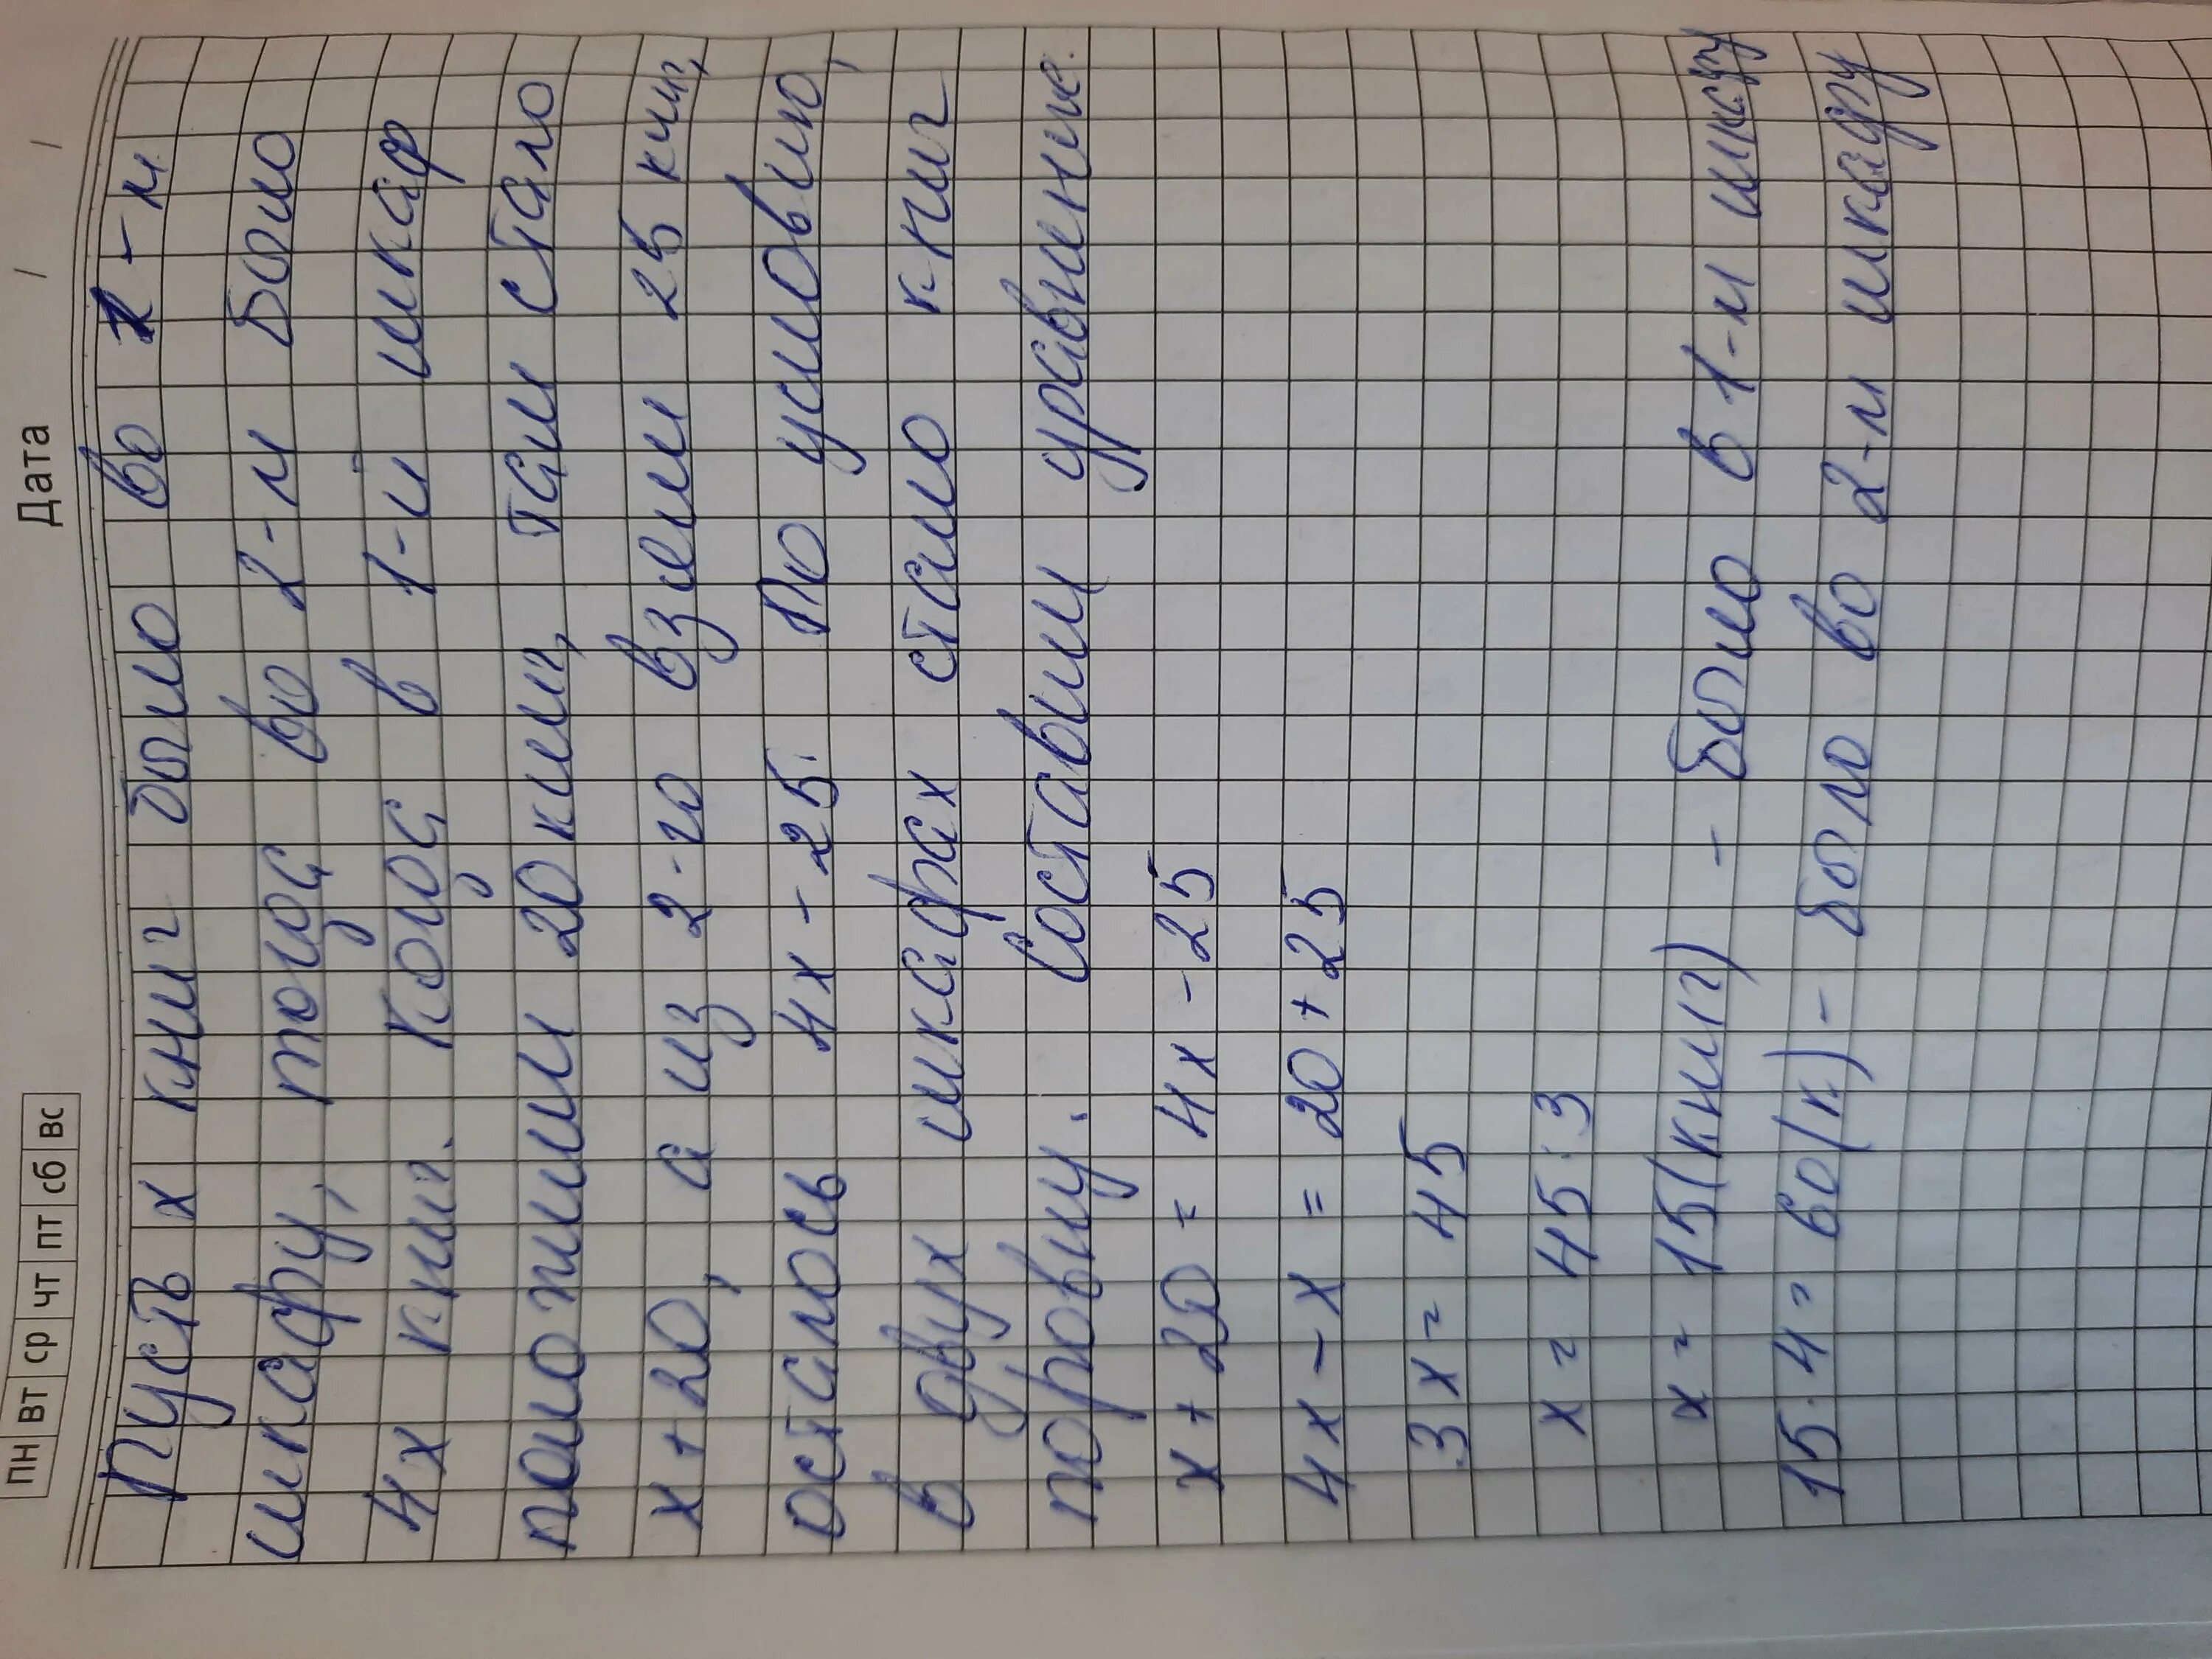 Дата / /
пн вт ср чт пт сб вс
Пусть х книг было во 1-м
шкафу, тогда во 2-м было
4х книг. Когда в 1-й шкаф
положили 20 книг, там стало
х+20, а из 2-го взяли 25 книг,
осталось 4х-25. По условию,
в двух шкафах стало книг
поровну. Составим уравнение.
х+20=4х-25
4х-х=20+25
3х=45
х=45:3
х=15(книг) - было в 1-м шкафу
15·4=60(к)- было во 2-м шкафу